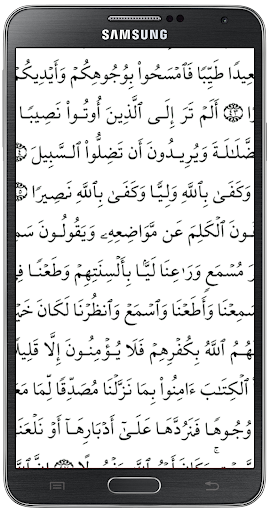 SAMSUNG
ـعِيدًا طَيِّبًا فَٱمْسَحُوا۟ بِوُجُوهِكُمْ وَأَيْدِيكُمْ
٤٣ أَلَمْ تَرَ إِلَى ٱلَّذِينَ أُوتُوا۟ نَصِيبًا
ضَّلَـٰلَةَ وَيُرِيدُونَ أَن تَضِلُّوا۟ ٱلسَّبِيلَ
وَكَفَىٰ بِٱللَّهِ وَلِيًّا وَكَفَىٰ بِٱللَّهِ نَصِيرًا
ـفُونَ ٱلْكَلِمَ عَن مَّوَاضِعِهِۦ وَيَقُولُونَ سَمِـ
ـرَ مُسْمَعٍ وَرَٰعِنَا لَيًّۢا بِأَلْسِنَتِهِمْ وَطَعْنًا
سَمِعْنَا وَأَطَعْنَا وَٱسْمَعْ وَٱنظُرْنَا لَكَانَ خَيْـ
ـهُمُ ٱللَّهُ بِكُفْرِهِمْ فَلَا يُؤْمِنُونَ إِلَّا قَلِيلًا
ٱلْكِتَـٰبَ ءَامِنُوا۟ بِمَا نَزَّلْنَا مُصَدِّقًا لِّمَا مَعَـ
وُجُوهًا فَنَرُدَّهَا عَلَىٰٓ أَدْبَارِهَآ أَوْ نَلْعَنَـ